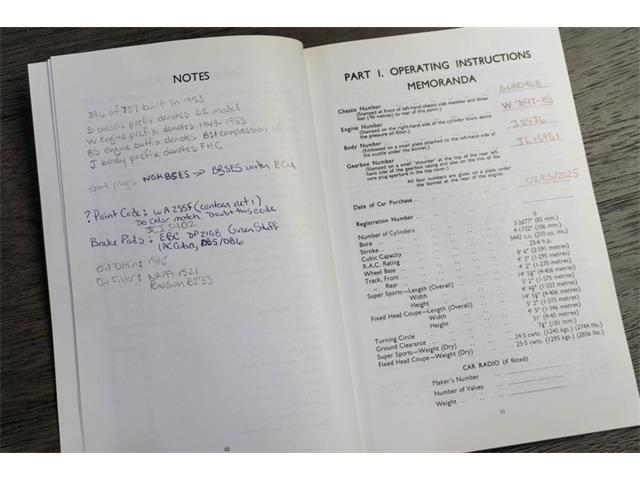 NOTES
316 of 757 built in 1953
S chassis prefix denotes SE model
W engine prefix denotes 1949-1953
8S engine suffix denotes 8:1 compression
J body prefix denotes FHC
spark plugs NGK B5ES → BR5ES with ECU
? Paint Code: WA255F (centeas net 1)
Do color match. Doubt this code
Brake Pads: EBC DP2108 GreenStuff
(AC Cobra, DB5/DB6
Oil Drain: 15/16"
Oil Filter: NAPA 1521
Baldwin B233
10
PART I. OPERATING INSTRUCTIONS
MEMORANDA
Chassis Number S680468
(Stamped at front of left-hand chassis side member and three
feet (90 metres) to rear of this point.)
Engine Number W 7897-8S
(Stamped on the right-hand side of the cylinder block above
the pressure oil filter.)
Body Number J 2976
(Embossed on a small plate attached to the left-hand side of
the scuttle under the bonnet.)
Gearbox Number JL15951
(Stamped on a small 'shoulder' at the top of the rear left-
hand side of the gearbox casing and also on the rim of the
core plug aperture in the top cover.)
All four numbers are given on a plate under
the bonnet at the rear of the engine.
Date of Car Purchase 02/03/2025
Registration Number
Number of Cylinders 6
Bore 3·2677" (83 mm.)
Stroke 4·1732" (106 mm.)
Cubic Capacity 3442 c.c. (210 cu. ins.)
R.A.C. Rating 25·6 h.p.
Wheel Base 8' 6" (2·591 metres)
Track, Front 4' 3" (1·295 metres)
„ Rear 4' 2" (1·270 metres)
Super Sports—Length (Overall) 14' 5½" (4·406 metres)
Width 5' 2" (1·575 metres)
Height 4' 4½" (1·333 metres)
Fixed Head Coupe—Length (Overall) 14' 5½" (4·406 metres)
Width 5' 2" (1·575 metres)
Height 4' 5" (1·346 metres)
Turning Circle 31' (9·45 metres)
Ground Clearance 7⅛" (181 mm.)
Super Sports—Weight (Dry) 24·5 cwts. (1245 kgs.) (2744 lbs.)
Fixed Head Coupe—Weight (Dry) 25·5 cwts. (1295 kgs.) (2856 lbs.)
CAR RADIO (if fitted)
Maker's Number
Number of Valves
Weight
11